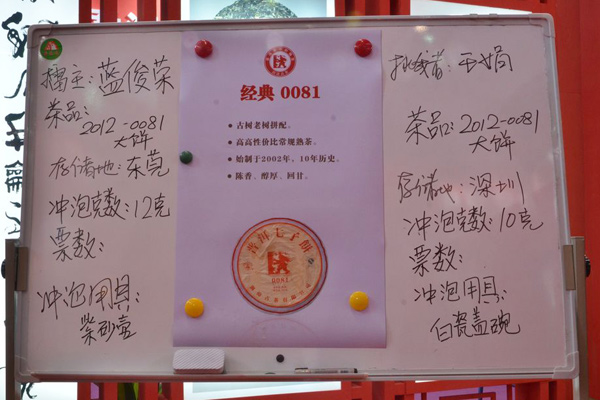 擂主:蓝俊荣
茶品:
2012-0081
大饼
存储地:东莞
冲泡克数:12克
票数:
冲泡用具:
紫砂壶
经典 0081
古树老树拼配。
高高性价比常规熟茶。
始制于2002年，10年历史。
陈香、醇厚、回甘。
七子饼
0081
挑战者:王娟
茶品:2012-0081
大饼
存储地:深圳
冲泡克数:10克
票数:
冲泡用具:
白瓷盖碗